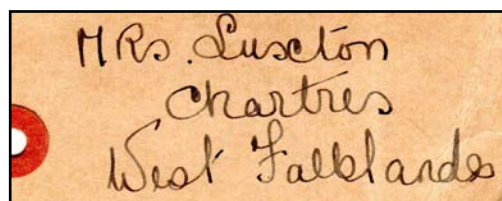 MRs. Luxton
Chartres
West Falklandes